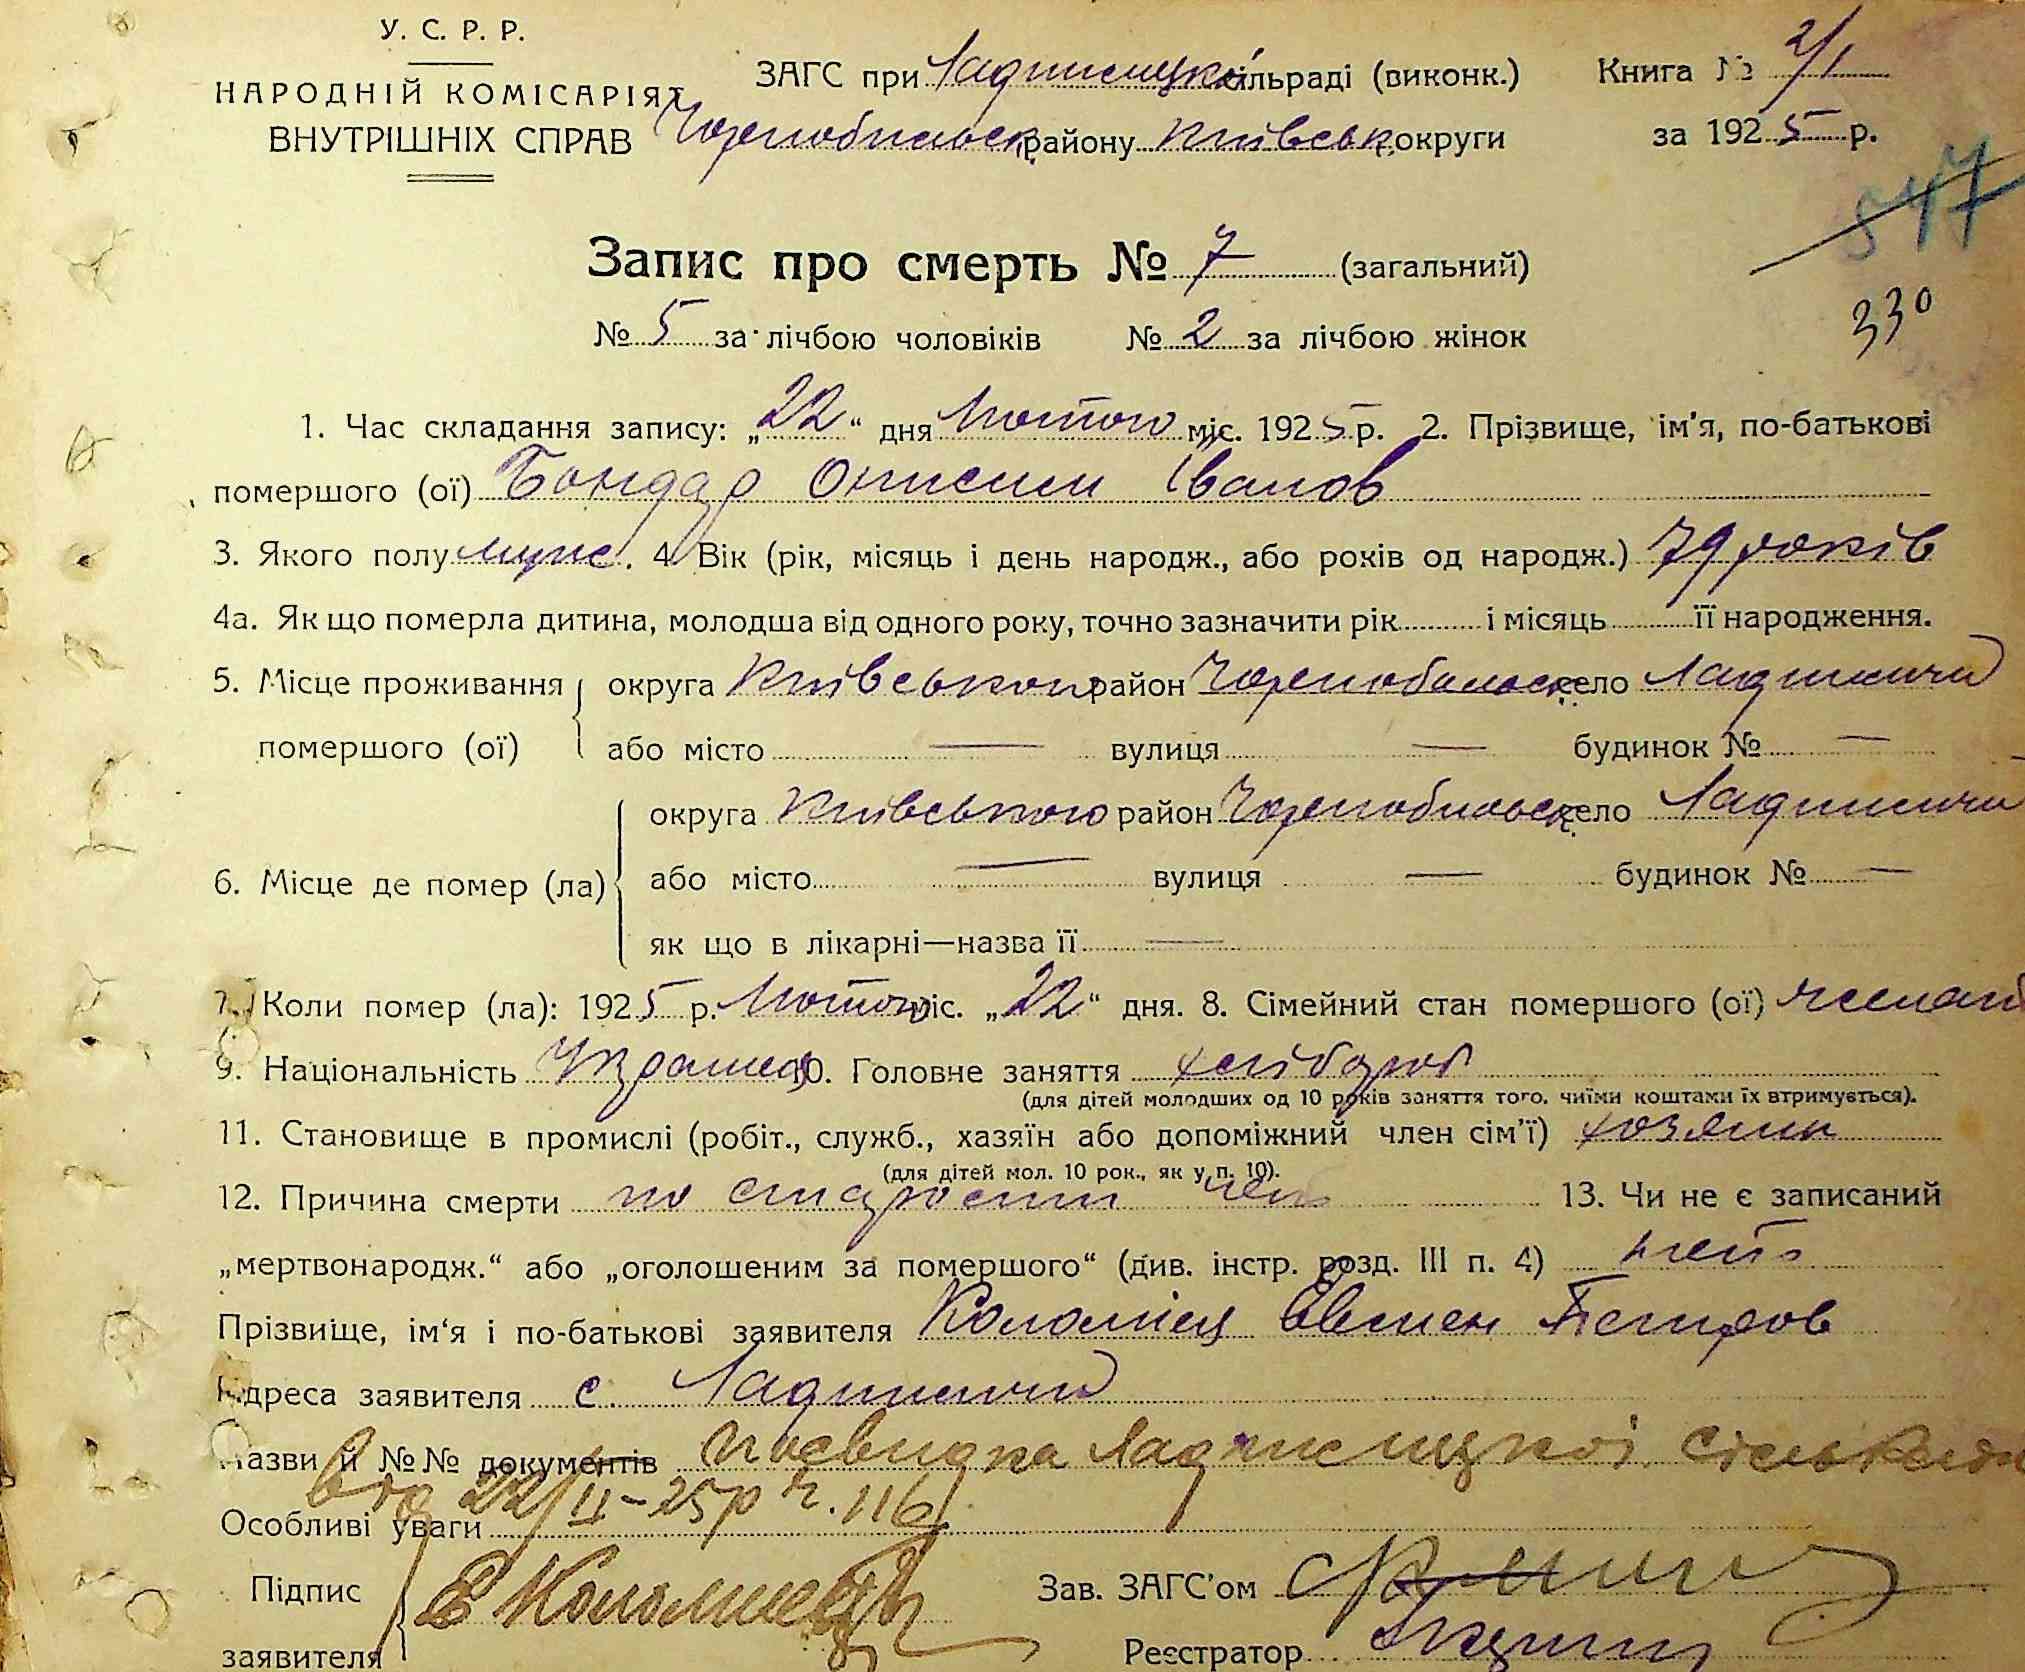 У. С. Р. Р.
НАРОДНІЙ КОМІСАРІЯТ
ВНУТРІШНІХ СПРАВ
ЗАГС при Ладижицькі сільраді (виконк.) Книга № 2/1
Чорнобильськ. району Київськ. округи за 1925 р.
547
Запис про смерть № 7 (загальний)
№ 5 за лічбою чоловіків № 2 за лічбою жінок
330
1. Час складання запису: „22“ дня Лютого міс. 1925 р. 2. Прізвище, ім'я, по-батькові
помершого (ої) Бондар Онисим Іванов
3. Якого полу муж. 4. Вік (рік, місяць і день народж., або років од народж.) 79 років
4а. Як що померла дитина, молодша від одного року, точно зазначити рік і місяць її народження.
5. Місце проживання округа Київського район Чорнобильськ. село Ладижичи
помершого (ої) або місто — вулиця — будинок № —
округа Київського район Чорнобильськ. село Ладижичи
6. Місце де помер (ла) або місто — вулиця — будинок № —
як що в лікарні—назва її —
7. Коли помер (ла): 1925 р. Лютого міс. „22“ дня. 8. Сімейний стан помершого (ої) женат
9. Національність Украинец 10. Головне заняття хлібороб
(для дітей молодших од 10 років заняття того, чиїми коштами їх втримується).
11. Становище в промислі (робіт., служб., хазяїн або допоміжний член сім'ї) хозяин
(для дітей мол. 10 рок., як у п. 10).
12. Причина смерти по старости лет 13. Чи не є записаний
„мертвонародж.“ або „оголошеним за помершого“ (див. інстр. розд. III п. 4) нет
Прізвище, ім'я і по-батькові заявителя Коломієц Евмен Петров
Адреса заявителя с. Ладижичи
Назви й №№ документів Посвидка Ладижицкоі
від 22/II-25р Ч. 116
Особливі уваги
Підпис Е Коломиець Зав. ЗАГС'ом
заявителя Реєстратор